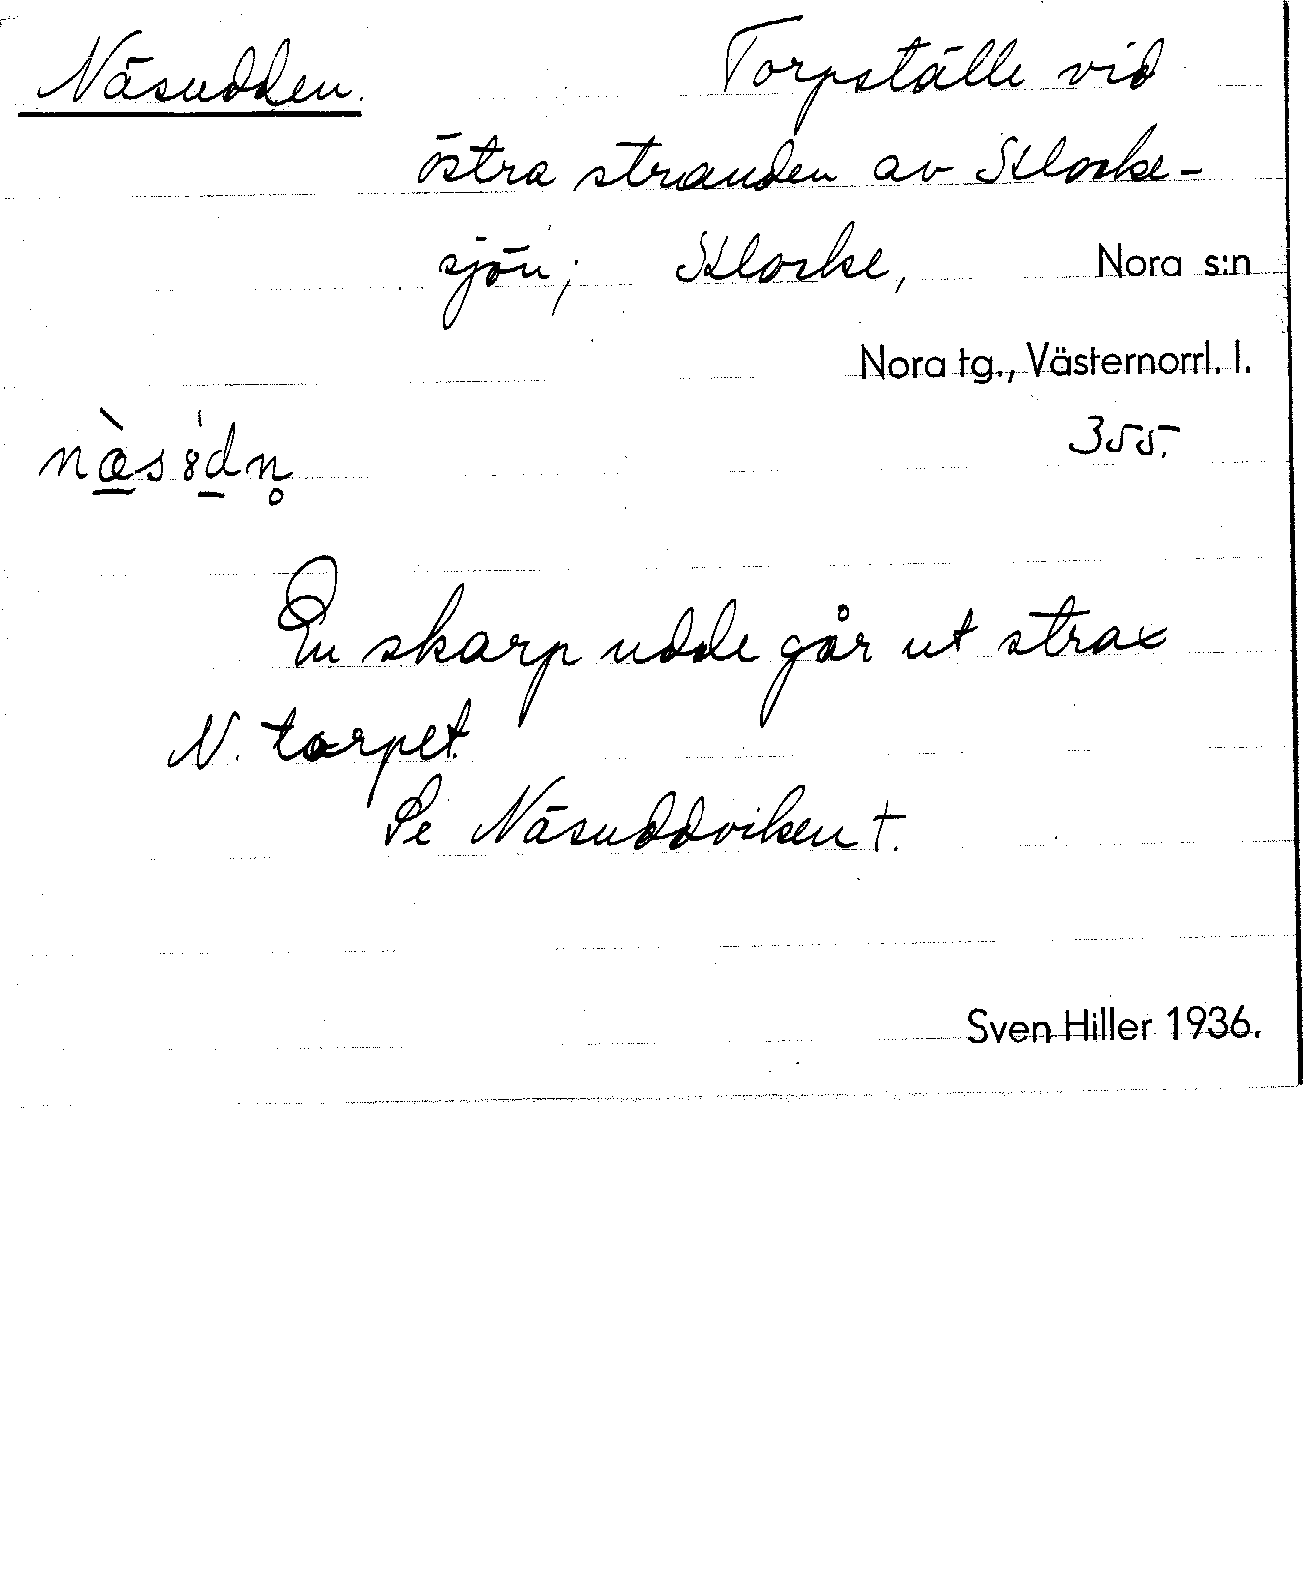 Näsudden. Torpställe vid
östra stranden av Klocke-
sjön; Klocke, Nora s:n
Nora tg., Västernorrl. l.
355.
En skarp udde går ut strax
N. torpet.
Se Näsuddviken +.
Sven Hiller 1936.